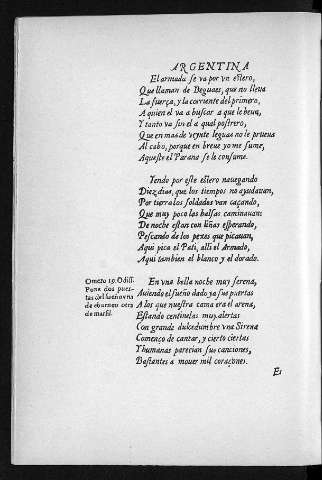 ARGENTINA
El armada se va por vn estero,
Que llaman de Beguaes, que no lleva
La fuerça, y la corriente del primero,
A quien el va a buscar a que le beua,
Y tanto va sin el a qual postrero,
Que en mas de veynte leguas no le prueua
Al cabo, porque en breue yo me sume,
Aqueste el Parana se le consume.
Yendo por este estero nauegando
Diez dias, que los tiempos no ayudavan,
Por tierra los soldados van caçando,
Que muy poco las balsas caminauan:
De noche estan con liñas esperando,
Pescando de los pexes que picauan,
Aqui pica el Pati, alli el Armado,
Aqui tambien el blanco y el dorado.
En vna bella noche muy serena,
Auiendo el sueño dado ya sus puertas
A los que nuestra cama era el arena,
Estando centinelas muy alertas
Con grande dulcedumbre vna Sirena
Començo de cantar, y cierto ciertas
Y humanas parecian sus canciones,
Bastantes a mouer mil coraçones.
Omero 19. Odiss.
Pone dos puer-
tas del sueño vna
de eburneo otra
de marfil.
Es